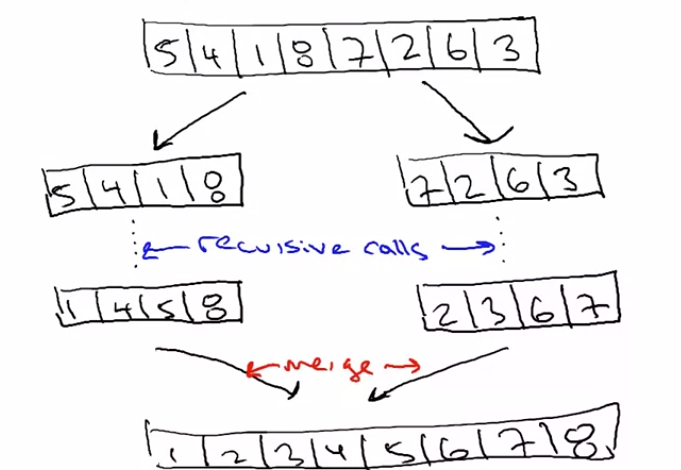 5 4 1 8 7 2 6 3
5 4 1 8
7 2 6 3
recuisive calls
1 4 5 8
2 3 6 7
merge
1 2 3 4 5 6 7 8